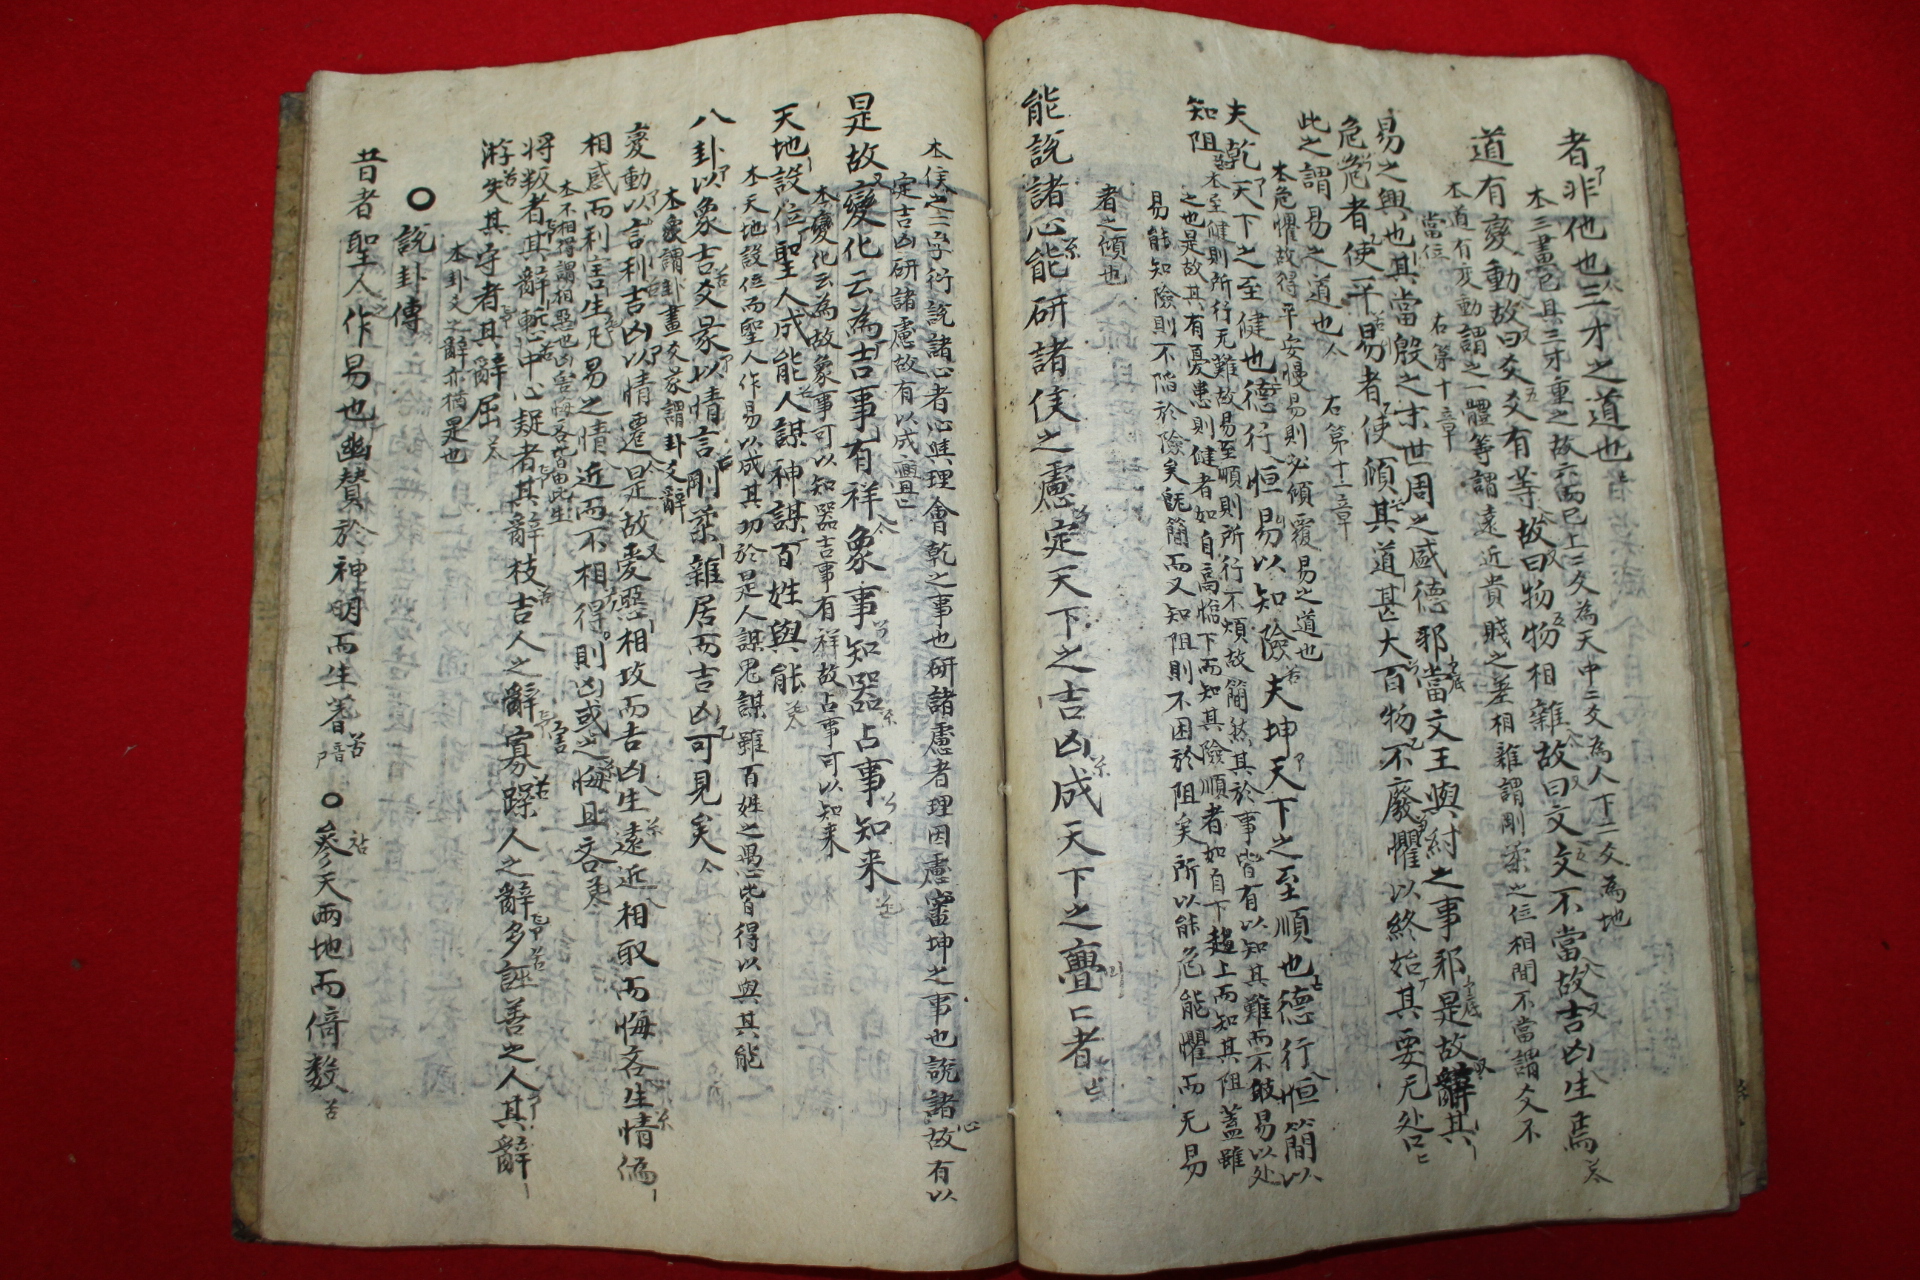 者非他也三才之道也
本三畫已具三才重之故六而已上二爻為天中二爻為人下二爻為地
道有變動故曰爻爻有等故曰物物相雜故曰文文不當故吉凶生焉
本道有变動謂之一體等謂遠近貴賤之差相雜謂剛柔之位相間不當謂爻不
當位
右第十章
易之興也其當殷之末世周之盛德邪當文王與紂之事邪是故辭其
危危者使平易者使傾其道甚大百物不廢懼以終始其要无咎
此之謂易之道也
本危懼故得平安慢易則必傾覆易之道也
右第十一章
夫乾天下之至健也德行恒易以知險夫坤天下之至順也德行恒簡以
知阻
本至健則所行无難故易至順則所行不煩故簡然其於事皆有以知其難而不敢易以处
之也是故其有憂患則健者如自高臨下而知其險順者如自下趨上而知其阻蓋雖
易能知險則不陷於險矣旣簡而又知阻則不困於阻矣所以能危能懼而无易
者之傾也
能說諸心能研諸侯之慮定天下之吉凶成天下之亹亹者
本侯之二字衍說諸心者心與理會乾之事也研諸慮者理因慮審坤之事也說諸故有以
定吉凶研諸慮故有以成亹亹
是故變化云為吉事有祥象事知器占事知来
本變化云為故象事可以知器吉事有祥故占事可以知来
天地設位聖人成能人謀神謀百姓與能
本天地設位而聖人作易以成其功於是人謀鬼謀雖百姓之愚皆得以與其能
八卦以象吉爻彖以情言剛柔雜居而吉凶可見矣
本象謂卦畫爻彖謂卦爻辭
变動以言利吉凶以情遷是故愛惡相攻而吉凶生遠近相取而悔吝生情僞
相感而利害生凡易之情近而不相得則凶或之悔且吝
本不相得謂相惡也凶害悔吝皆由此生
将叛者其辭慙中心疑者其辭枝吉人之辭寡躁人之辭多誣善之人其辭
游失其守者其辭屈
本卦爻之辭亦猶是也
○說卦傳
昔者聖人作易也幽贊於神明而生蓍○參天兩地而倚数